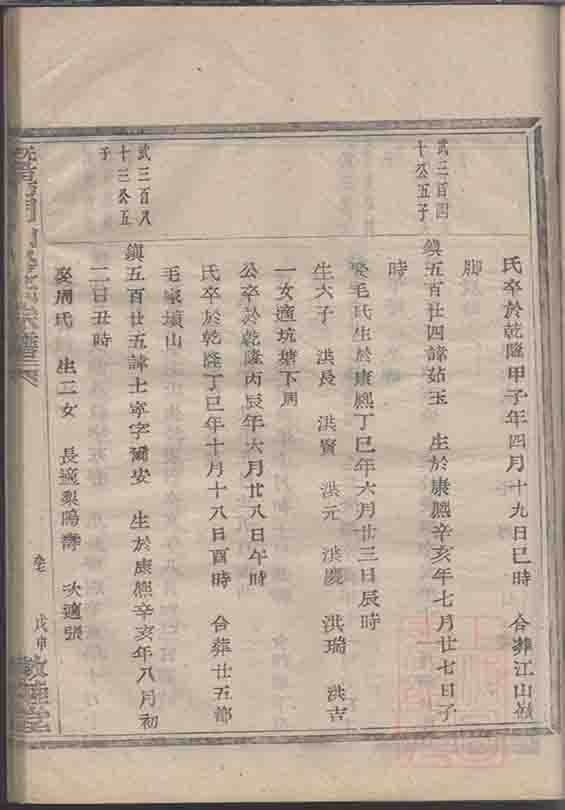 氏卒於乾隆甲子年四月十九日巳時　合葬江山嶺
脚
武三百四
十公五子
鎮五百廿四諱茹玉　生於康熙辛亥年七月廿七日子
時
娶毛氏生於康熙丁巳年六月廿三日辰時
生六子　洪長　洪賢　洪元　洪慶　洪瑞　洪吉
一女適坑塘下周
公卒於乾隆丙辰年六月廿八日午時
氏卒於乾隆丁巳年十月十八日酉時　合葬廿五都
毛家墳山
武三百八
十三公五
子
鎮五百廿五諱士寧字爾安　生於康熙辛亥年八月初
二日丑時
娶周氏　生二女　長適梨陽　次適張
戊申
敦睦堂